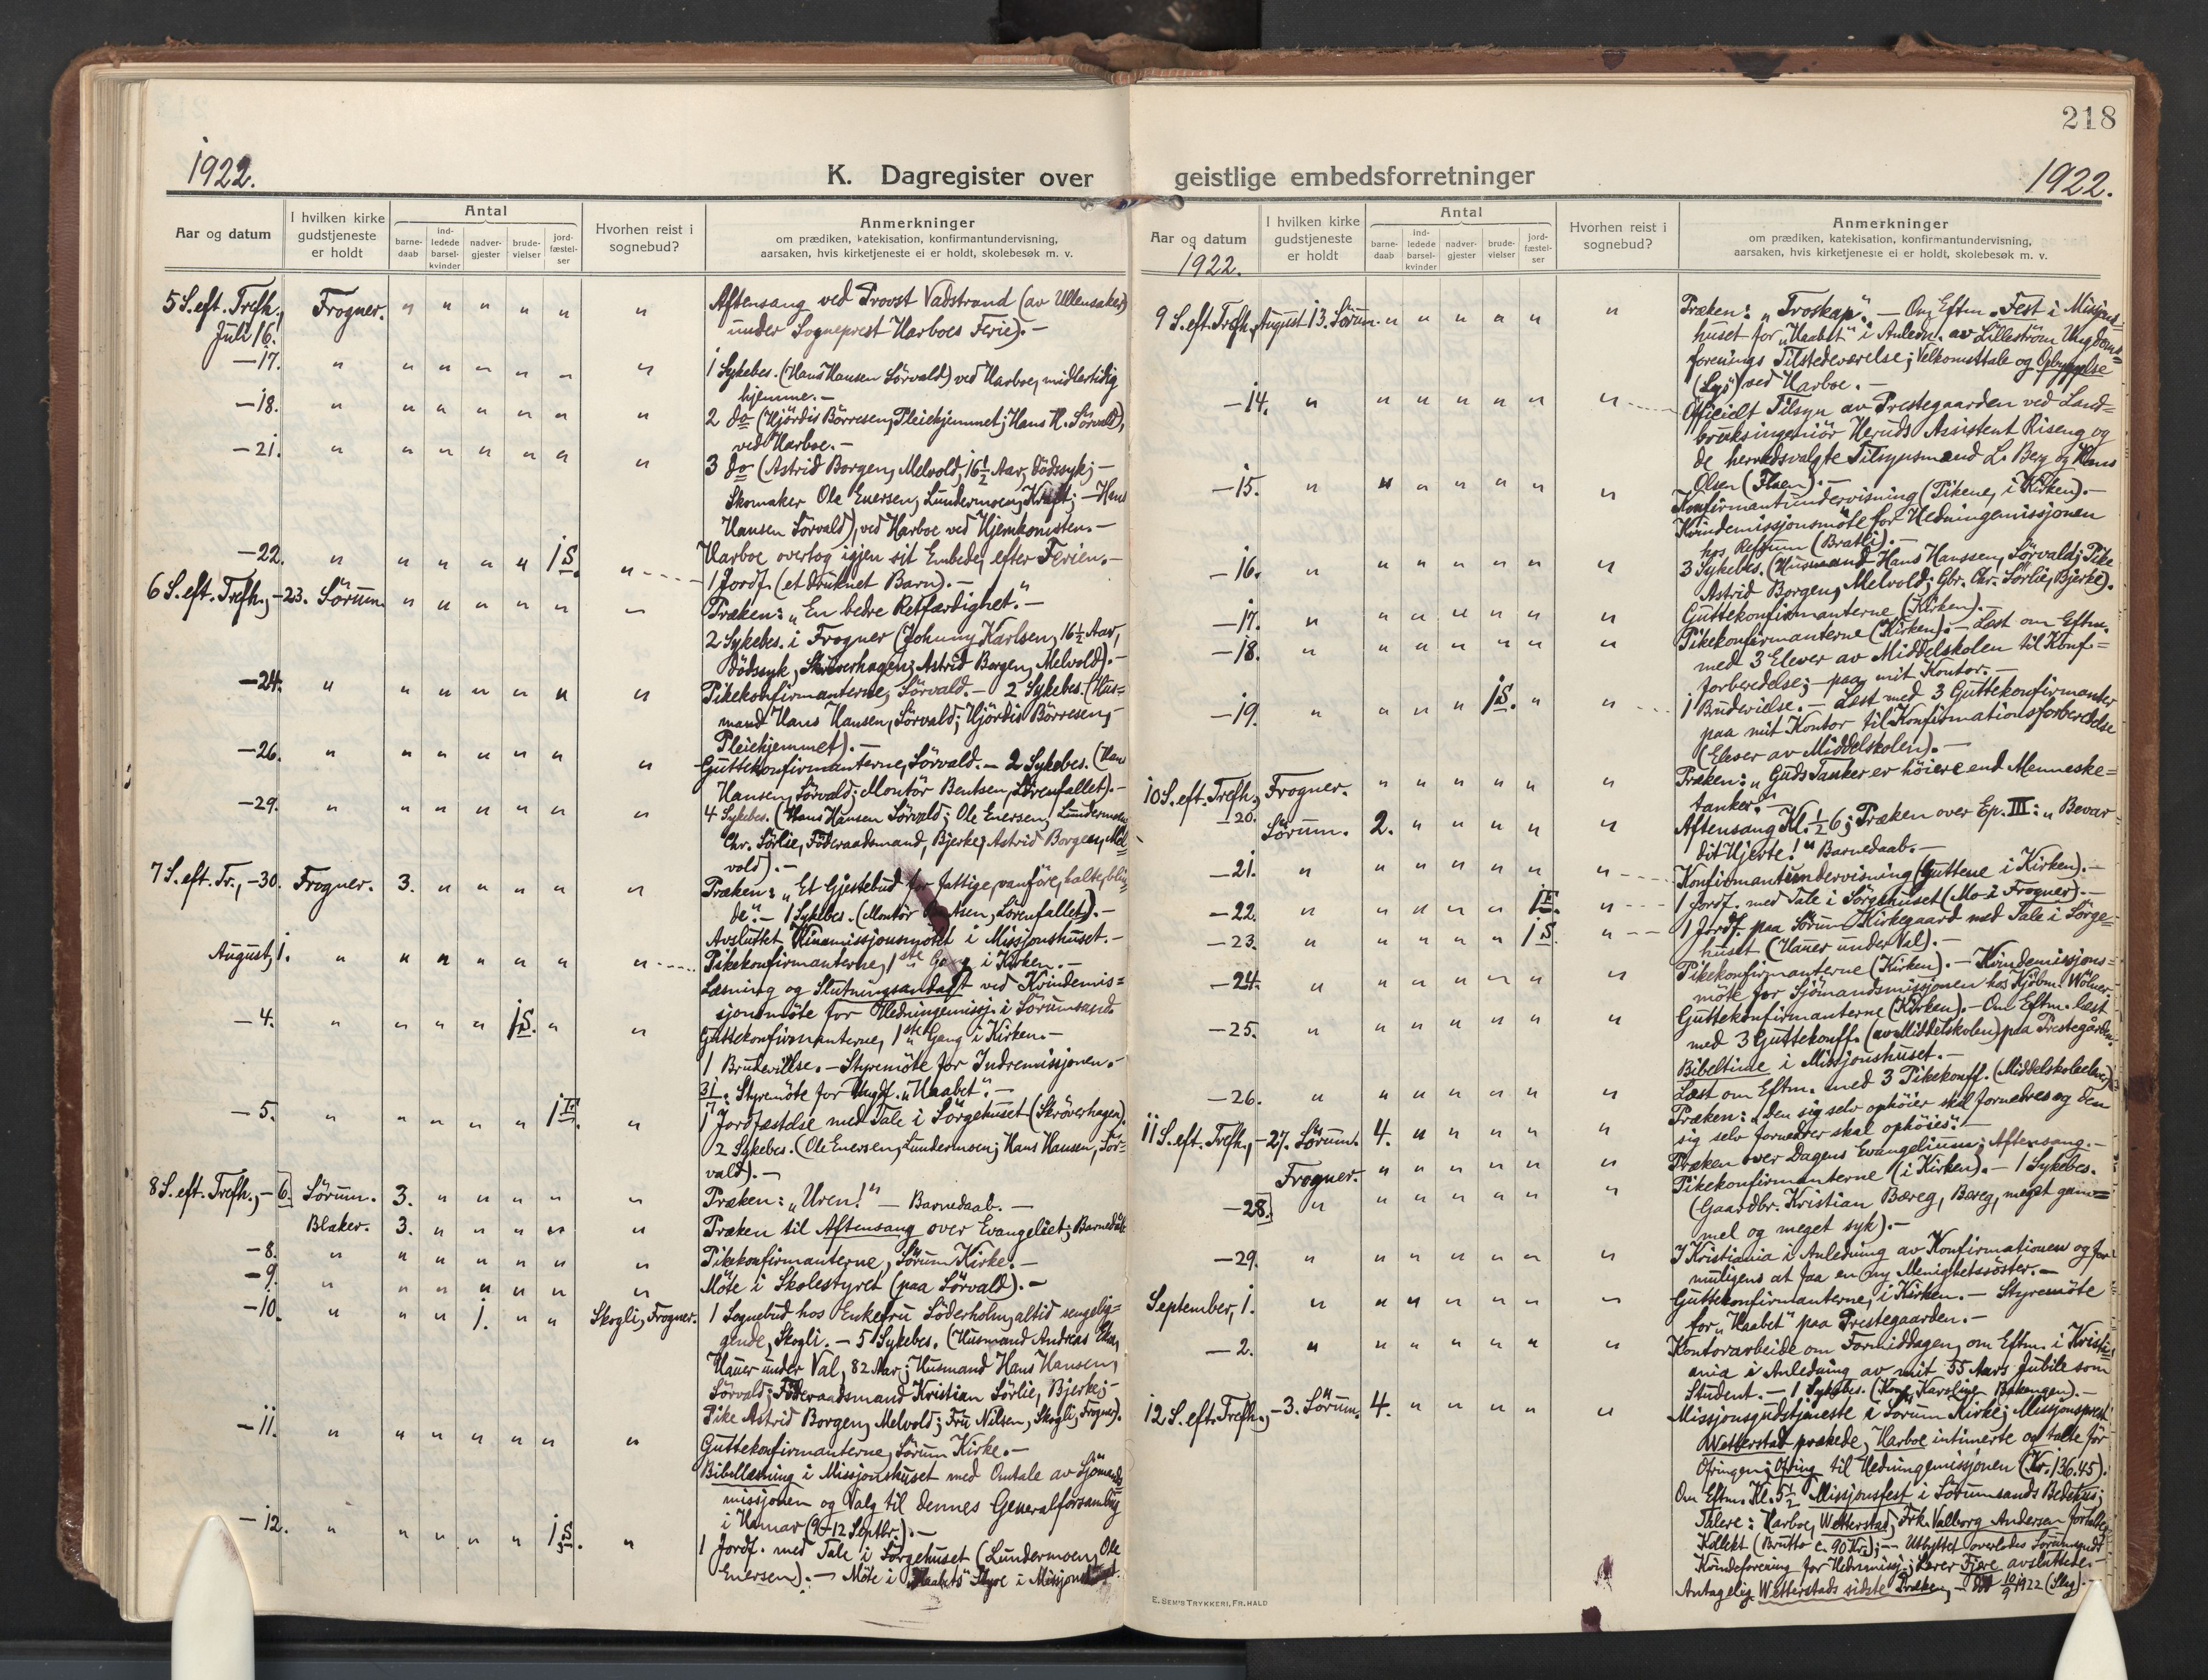 1922.
K. Dagregister over
Aar og datum
I hvilken kirke gudstjeneste er holdt
Antal
barne-daab
ind-ledede barsel-kvinder
nadver-gjester
brude-vielser
jord-fæstel-ser
Hvorhen reist i sognebud?
Anmerkninger
om prædiken, katekisation, konfirmantundervisning,
aarsaken, hvis kirketjeneste ei er holdt, skolebesøk m. v.
5 S. eft. Trefh., Frogner. " " " " " " Aftensang ved Provst Vadstrand (av Ullensaker)
Juli 16. under Sogneprest Harboes Ferie). -
-17. " " " " " " " 1 Sykebes. (Hans Hansen Sörvald) ved Harboe, midlertidig
hjemme. -
-18. " " " " " " " 2 do (Hjördis Börresen, Pleiehjemmet; Hans H. Sörvald),
ved Harboe. -
-21. " " " " " " " 3 do (Astrid Borgen, Melvold, 16½ Aar, dödssyk; -
Skomaker Ole Enersen, Lundermoen, Kræft; - Hans
Hansen Sörvald), ved Harboe ved Hjemkomsten. -
-22. " " " " " 1 S. " Harboe overtog igjen sit Embede, efter Ferien. -
1 Jordf. (et druknet Barn). -
6 S. eft. Trefh., -23. Sörum. " " " " " " Præken: "En bedre Retfærdighet." -
2 Sykebes. i Frogner (Johnny Karlsen, 16½ Aar,
dödssyk, Skröverhagen; Astrid Borgen, Melvold). -
-24. " " " " " " " Pikekonfirmanterne, Sörvald. - 2 Sykebes. (Hus=
mand Hans Hansen, Sörvald; Hjördis Börresen, -
Pleiehjemmet). -
-26. " " " " " " " Guttekonfirmanterne, Sörvald. - 2 Sykebes. (Hans
Hansen, Sörvald; Montör Bentsen, Sörenfallet). -
-29. " " " " " " " 4 Sykebes. (Hans Hansen Sörvald; Ole Enersen, Lundermoen
Chr. Sörlie, Föderaadsmand, Bjerke; Astrid Borgen, Mel
vold). -
7 S. eft. Tr., -30. Frogner. 3. " " " " " Præken: "Et Gjestebud for fattige, vanföre, halte, blin
de." - 1 Sykebes. (Montör Bentsen, Sörenfallet). -
Avsluttet Kinamissjonsmötet i Missjonshuset. -
August, 1. " " " " " " " Pikekonfirmanterne, 1ste Gang i Kirken. -
Læsning og Slutningsandagt ved Kvindemis=
sjonsmöte for Hedningemissj. i Sörumsand.
-4. " " " " 1 S. " " Guttekonfirmanterne, 1ste Gang i Kirken. -
1 Brudevielse. - Styremöte for Indremissjonen. -
31/7. Styremöte for Ungdf. "Haabet". -
-5. " " " " " 1 F. " 1 Jordfæstelse med Tale i Sörgehuset (Skröverhagen).
2 Sykebes. (Ole Enersen, Lundermoen; Hans Hansen, Sör=
vald). -
8 S. eft. Trefh., -6. Sörum. 3. " " " " " Præken: "Uren!" - Barnedaab. -
Blaker. 3. " " " " " Præken til Aftensang over Evangeliet; Barnedåb
-8. " " " " " " " Pikekonfirmanterne, Sörum Kirke. -
-9. " " " " " " " Möte i Skolestyret (paa Sörvald). -
-10. " " " 1. " " Skogli, Frogner. 1 Sognebud hos Enkefru Söderholm, altid sengelig=
gende, Skogli. - 5 Sykebes. (Husmand Andreas
Hauer under Val, 82 Aar; Husmand Hans Hansen,
Sörvald; Föderaadsmand Kristian Sörlie, Bjerke; -
Pike Astrid Borgen, Melvold; Fru Nilsen, Skogli, Frogner).
-11. " " " " " " " Guttekonfirmanterne, Sörum Kirke. -
Bibellæsning i Missjonshuset med Omtale av Sjömands
missjonen og Valg til dennes Generalforsamling
i Hamar (9-12 Septbr.). -
-12. " " " " " 1 S. " 1 Jordf. med Tale i Sörgehuset (Lundermoen, Ole
Enersen). - Möte i "Haabets" Styre i
218
geistlige embedsforretninger
1922.
Aar og datum
1922.
I hvilken kirke gudstjeneste er holdt
Antal
barne-daab
ind-ledede barsel-kvinder
nadver-gjester
brude-vielser
jord-fæstel-ser
Hvorhen reist i sognebud?
Anmerkninger
om prædiken, katekisation, konfirmantundervisning,
aarsaken, hvis kirketjeneste ei er holdt, skolebesøk m. v.
9 S. eft. Trefh., August 13. Sörum. " " " " " " Præken: "Troskap". - Om Eftm. Fest i Missjons=
huset for "Haabet" i Anledn. av Lilleström Ungdoms=
forenings Tilstedeværelse; Velkomsttale og Opbyggelse
("Lys") ved Harboe. -
-14. " " " " " " " Officielt Tilsyn av Prestegaarden ved Land=
bruksingeniör Heruds Assistent Riseng og
de herredsvalgte Tilsynsmænd L. Berg og Hans
Olsen (Flaen). -
-15. " " " " " " " Konfirmantundervisning (Pikene, i Kirken). -
Kvindemissjonsmöte for Hedningemissjonen
hos Refsum (Bratli). -
-16. " " " " " " " 3 Sykebes. (Husmand Hans Hanssen, Sörvald; Pike
Astrid Borgen, Melvold; Gbr. Chr. Sörlie, Bjerke).
-17. " " " " " " " Guttekonfirmanterne (Kirken). -
-18. " " " " " " " Pikekonfirmanterne (Kirken). - Læst om Eftm.
med 3 Elever av Middelskolen til Konf=
forberedelse; - paa mit Kontor. -
-19. " " " " 1 S. " " 1 Brudevielse. - Læst med 3 Guttekonfirmanter
paa mit Kontor til Konfirmationsforberedelse
(Elever av Middelskolen). -
10 S. eft. Trefh., Frogner. " " " " " " Præken: "Guds Tanker er höiere end Menneske=
tanker." -
-20. Sörum. 2. " " " " " Aftensang Kl. ½6; Præken over Ep. III: "Bevar
dit Hjerte!" Barnedaab. -
-21. " " " " " " " Konfirmantundervisning (Guttene i Kirken). -
-22. " " " " " 1 F. " 1 Jordf. med Tale i Sörgehuset (Mo i Frogner). -
-23. " " " " " 1 S. " 1 Jordf. paa Sörum Kirkegaard med Tale i Sörge=
huset (Hauer under Val). -
-24. " " " " " " " Pikekonfirmanterne (Kirken). - Kvindemissjons=
möte for Sjömandsmissjonen hos Kjöbm. Wölner
-25. " " " " " " " Guttekonfirmanterne (Kirken). - Om Eftm. læst
med 3 Guttekonff. (av Middelskolen) paa Prestegården.
Bibeltime i Missjonshuset. -
-26. " " " " " " " Læst om Eftm. med 3 Pikekonff. (Middelskoleelever)
11 S. eft. Trefh., -27. Sörum. 4. " " " " " Præken: "Den sig selv ophöier skal fornedres og den
sig selv fornedrer skal ophöies." -
Frogner. " " " " " " Præken over Dagens Evangelium; Aftensang. -
-28. " " " " " " " Pikekonfirmanterne (i Kirken). - 1 Sykebes.
(Gaardbr. Kristian Bæreg, Bæreg, meget gam=
mel og meget syk). -
-29. " " " " " " " I Kristiania i Anledning av Konfirmationen og for
muligens at faa en ny Menighetssöster. -
September, 1. " " " " " " " Guttekonfirmanterne, i Kirken. - Styremöte
for "Haabet" paa Prestegaarden. -
-2. " " " " " " " Kontorarbeide om Formiddagen, om Eftm. i Kristi=
ania i Anledning av mit 55 Aars Jubilé som
Student. - 1 Sykebes. (Kone Karoline Bakengen). -
12 S. eft. Trefh., -3. Sörum. 4. " " " " " Missjonsgudstjeneste i Sörum Kirke; Missjonsprest
Wetterstad prækede, Harboe intimerte og talte för
Ofringen; Ofring til Hedningemissjonen (Kr. 136.45).
Om Eftm. Kl. 5½ Missjonsfest i Sörumsands Bedehus;
Talere: Harboe, Wetterstad, Frk. Valborg Andersen fortalte
Kollekt (Brutto c. 90 Kr.); - Utbyttet overlodes Sörumsands
Kvindeforening for Hednmissj.; Lærer Fjære avsluttede. -
Antagelig Wetterstads sidste Præken, - 10/9 1922 (Slag). -
E. SEM'S TRYKKERI, FR.HALD